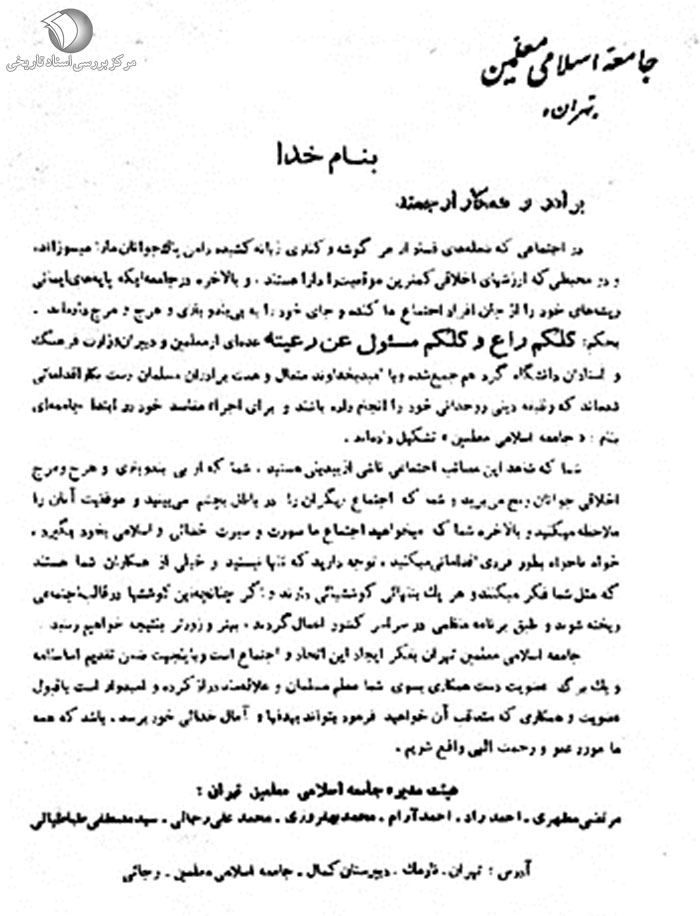 مرکز بررسی اسناد تاریخی
جامعهٔ اسلامی معلمین
تهران
بنام خدا
برادر و همکار ارجمند
در اجتماعی که شعله‌های فساد از هر گوشه و کناری زبانه کشیده دامن پاک جوانان مارا میسوزاند،
و در محیطی که ارزشهای اخلاقی کمترین موقعیت را دارا هستند ، و بالاخره در جامعه‌ایکه پایه‌های ایمانی
ریشه‌های خود را از جان افراد اجتماع ما کنده و جای خود را به بی‌بندوباری و هرج و مرج داده‌اند .
بحکم: کلکم راع و کلکم مسئول عن رعیته عده‌ای از معلمین و دبیران وزارت فرهنگ
و استادان دانشگاه گرد هم جمع شده و با امید بخداوند متعال و همت برادران مسلمان دست بکار اقداماتی
شده‌اند که وظیفه دینی و وجدانی خود را انجام داده باشند و برای اجراء مقاصد خود در ابتدا جامعه‌ای
بنام : « جامعه اسلامی معلمین » تشکیل داده‌اند .
شما که شاهد این مصائب اجتماعی ناشی از بیدینی هستید ، شما که از بی بندوباری و هرج و مرج
اخلاقی جوانان رنج می‌برید و شما که اجتماع دیگران را در باطل بچشم می‌بینید و موفقیت آنان را
ملاحظه میکنید و بالاخره شما که میخواهید اجتماع ما صورت و سیرت خدائی و اسلامی بخود بگیرد ،
خواه ناخواه بطور فردی اقداماتی میکنید . توجه دارید که تنها نیستید و خیلی از همکاران شما هستند
که مثل شما فکر میکنند و هر یک بتنهائی کوششهائی دارند و اگر چنانچه این کوششها در قالب اجتماعی
ریخته شوند و طبق برنامه منظمی در سراسر کشور اعمال گردند ، بهتر و زودتر بنتیجه خواهیم رسید .
جامعه اسلامی معلمین تهران بفکر ایجاد این اتحاد و اجتماع است و باینجهت ضمن تقدیم اساسنامه
و یک برگ عضویت دست همکاری بسوی شما معلم مسلمان و علاقمند دراز کرده و امیدوار است با قبول
عضویت و همکاری که متعاقب آن خواهید فرمود بتواند بهدفها و آمال خدائی خود برسد . باشد که همه
ما مورد عفو و رحمت الهی واقع شویم .
هیئت مدیره جامعه اسلامی معلمین تهران :
مرتضی مطهری . احمد راد . احمد آرام . محمد بهفروزی . محمد علی رجائی . سید مصطفی طباطبائی
آدرس : تهران . نارمک . دبیرستان کمال . جامعه اسلامی معلمین . رجائی